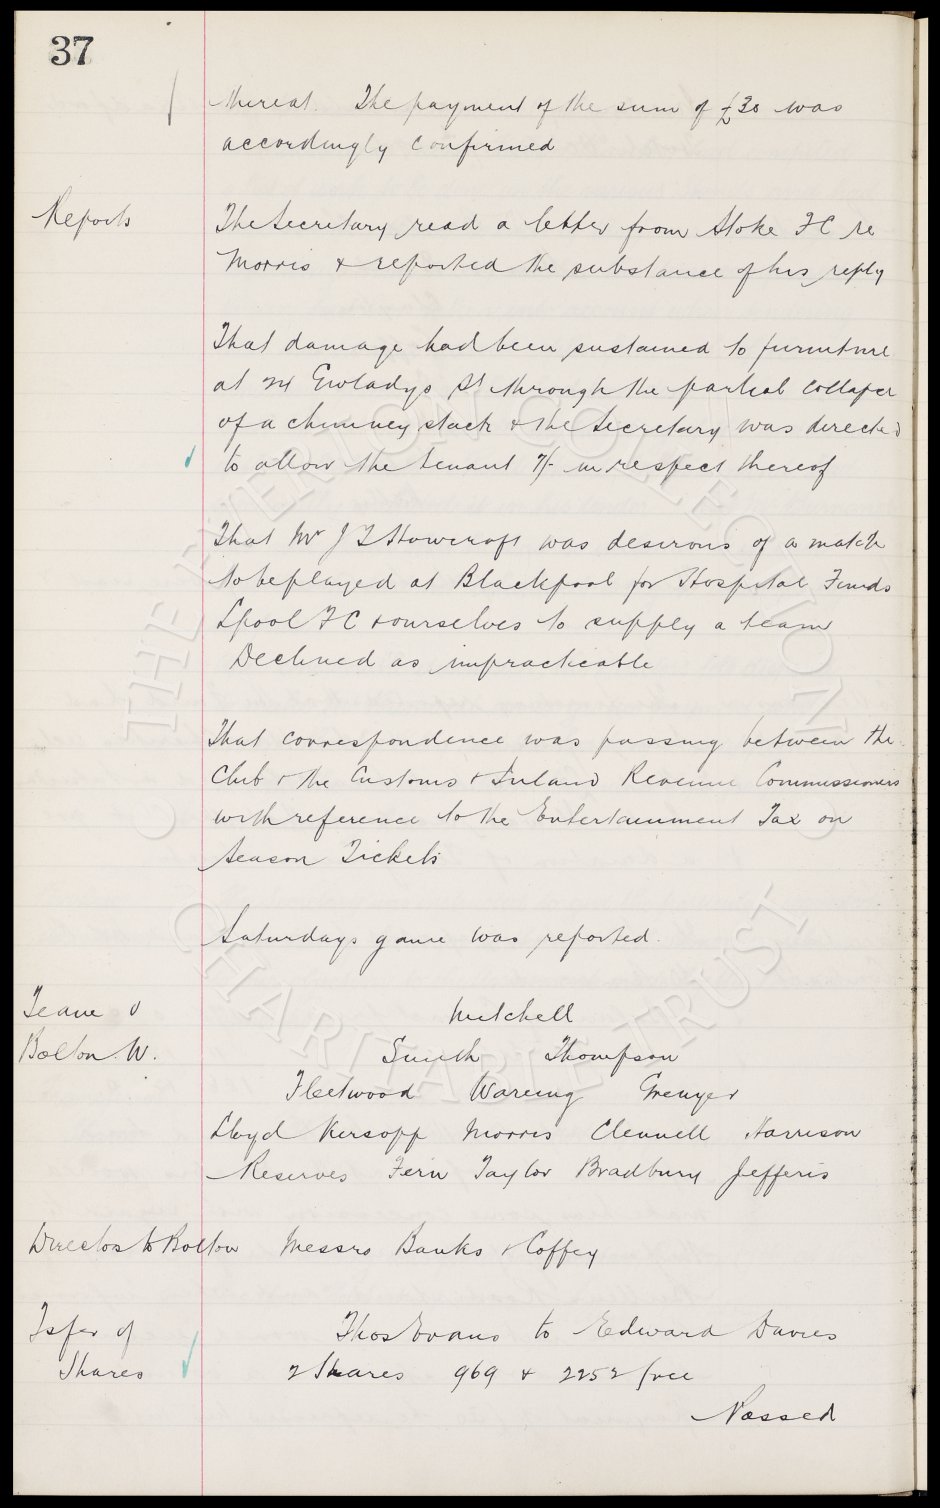 37
thereat. The payment of the sum of £30 was
accordingly confirmed
Reports
The Secretary read a letter from Stoke FC re
Morris & reported the substance of his reply
That damage had been sustained to furniture
at 24 Gwladys St through the partial collapse
of a chimney stack & the Secretary was directed
to allow the tenant 7/- in respect thereof
That Mr J T Howcroft was desirous of a match
to be played at Blackpool for Hospital Funds
Lpool FC & ourselves to supply a team
Declined as impracticable
That correspondence was passing between the
Club & the Customs & Inland Revenue Commissioners
with reference to the Entertainment Tax on
Season Tickets
Saturdays game was reported.
Team v
Bolton W.
Mitchell
Smith Thompson
Fleetwood Wareing Grenyer
Lloyd Kirsopp Morris Clennell Harrison
Reserves Fern Taylor Bradbury Jefferis
Directors to Bolton Messrs Banks & Coffey
Tsfer of
Shares
Thos Evans to Edward Davies
2 Shares 969 & 2252 free
Passed
© THE EVERTON COLLECTION
CHARITABLE TRUST